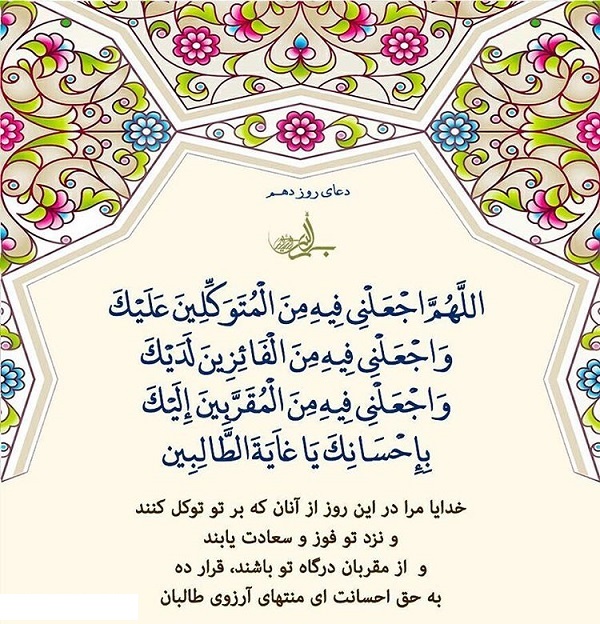 دعای روز دهـم
اللَّهُمَّ اجْعَلْنِي فِيهِ مِنَ الْمُتَوَكِّلِينَ عَلَيْكَ
وَاجْعَلْنِي فِيهِ مِنَ الْفَائِزِينَ لَدَيْكَ
وَاجْعَلْنِي فِيهِ مِنَ الْمُقَرَّبِينَ إِلَيْكَ
بِإِحْسَانِكَ يَا غَايَةَ الطَّالِبِين
خدایا مرا در این روز از آنان که بر تو توکل کنند
و نزد تو فوز و سعادت یابند
و از مقربان درگاه تو باشند، قرار ده
به حق احسانت ای منتهای آرزوی طالبان